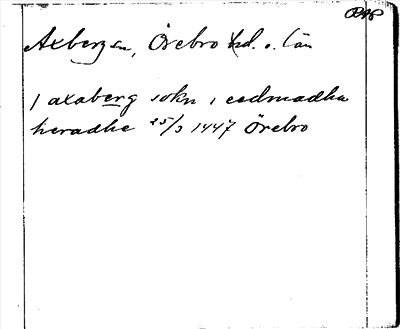 RAP
Axbergsn, Örebro hd. o. län
j axaberg sokn i eedmadha
heradhe 25/3 1447 Örebro